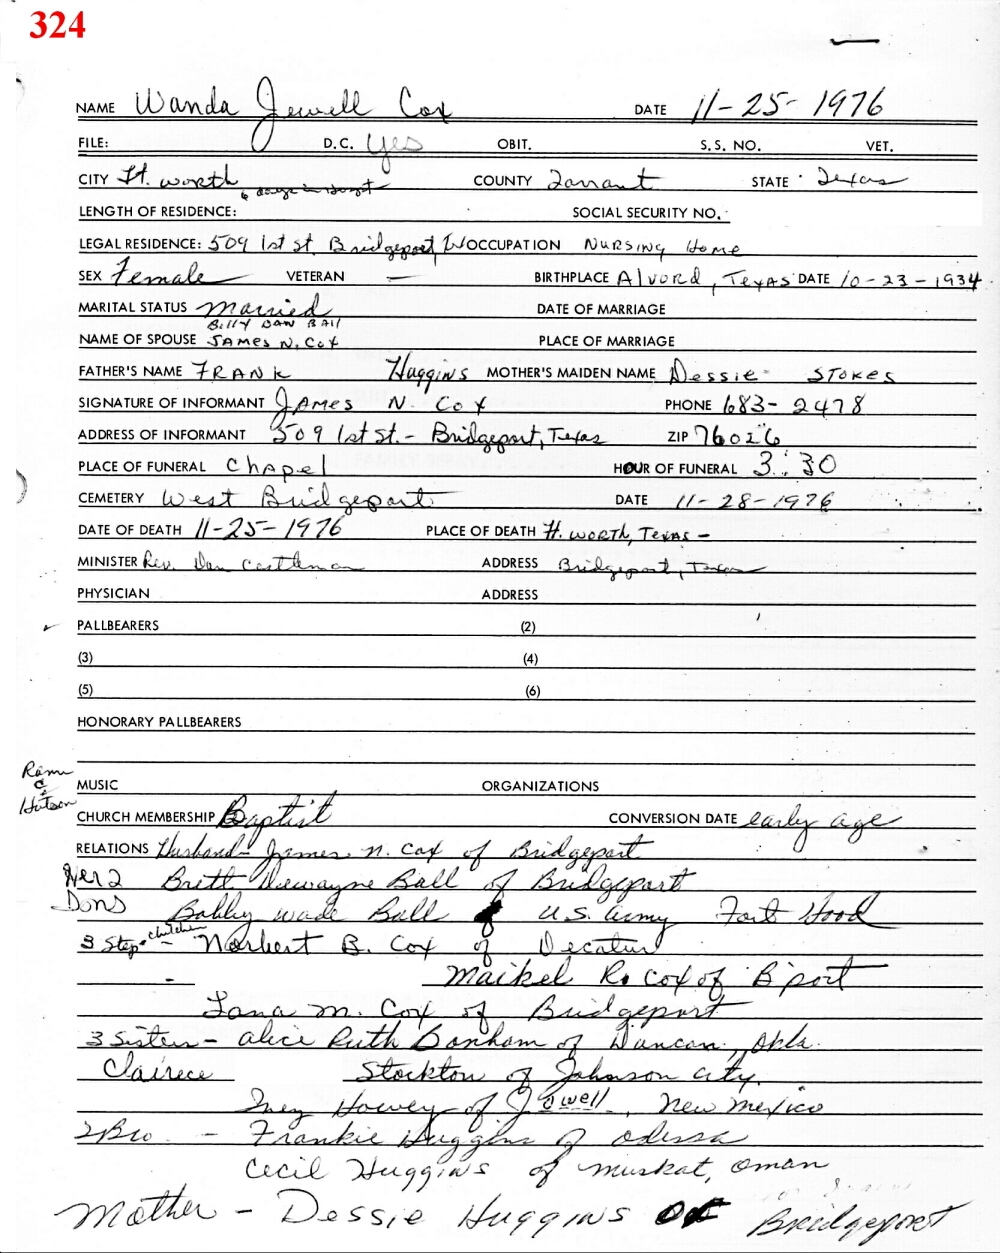 324
NAME Wanda Jewell Cox DATE 11-25-1976
FILE: D.C. yes OBIT. S.S. NO. VET.
CITY Ft. Worth, 6 days in Hospt COUNTY Tarrant STATE Texas
LENGTH OF RESIDENCE: SOCIAL SECURITY NO.
LEGAL RESIDENCE: 509 1st St. Bridgeport, OCCUPATION Nursing Home
SEX Female VETERAN — BIRTHPLACE Alvord, Texas DATE 10-23-1934
MARITAL STATUS Married DATE OF MARRIAGE
Billy Dan Ball
NAME OF SPOUSE James N. Cox PLACE OF MARRIAGE
FATHER'S NAME Frank Huggins MOTHER'S MAIDEN NAME Dessie Stokes
SIGNATURE OF INFORMANT James N. Cox PHONE 683-2478
ADDRESS OF INFORMANT 509 1st St. - Bridgeport, Texas ZIP 76026
PLACE OF FUNERAL Chapel HOUR OF FUNERAL 3:30
CEMETERY West Bridgeport DATE 11-28-1976
DATE OF DEATH 11-25-1976 PLACE OF DEATH Ft. Worth, Texas -
MINISTER Rev. Dan Castleman ADDRESS Bridgeport, Texas
PHYSICIAN ADDRESS
PALLBEARERS (2)
(3) (4)
(5) (6)
HONORARY PALLBEARERS
MUSIC ORGANIZATIONS
Hutson
CHURCH MEMBERSHIP Baptist CONVERSION DATE early age
RELATIONS Husband - James N. Cox of Bridgeport
Her 2 Brett Dewayne Ball of Bridgeport
Sons Bobby Wade Ball U.S. Army Fort Hood
3 Step-children - Norbert B. Cox of Decatur
- Maikel R. Cox of B'port
Lana M. Cox of Bridgeport
3 Sisters - Alice Ruth Bonham of Duncan, Okla.
Clairece Stockton of Johnson City.
Inez Howey of Jowell, New Mexico
2 Bro. - Frankie Huggins of Odessa
Cecil Huggins of Muskat, Oman
Mother - Dessie Huggins of Bridgeport